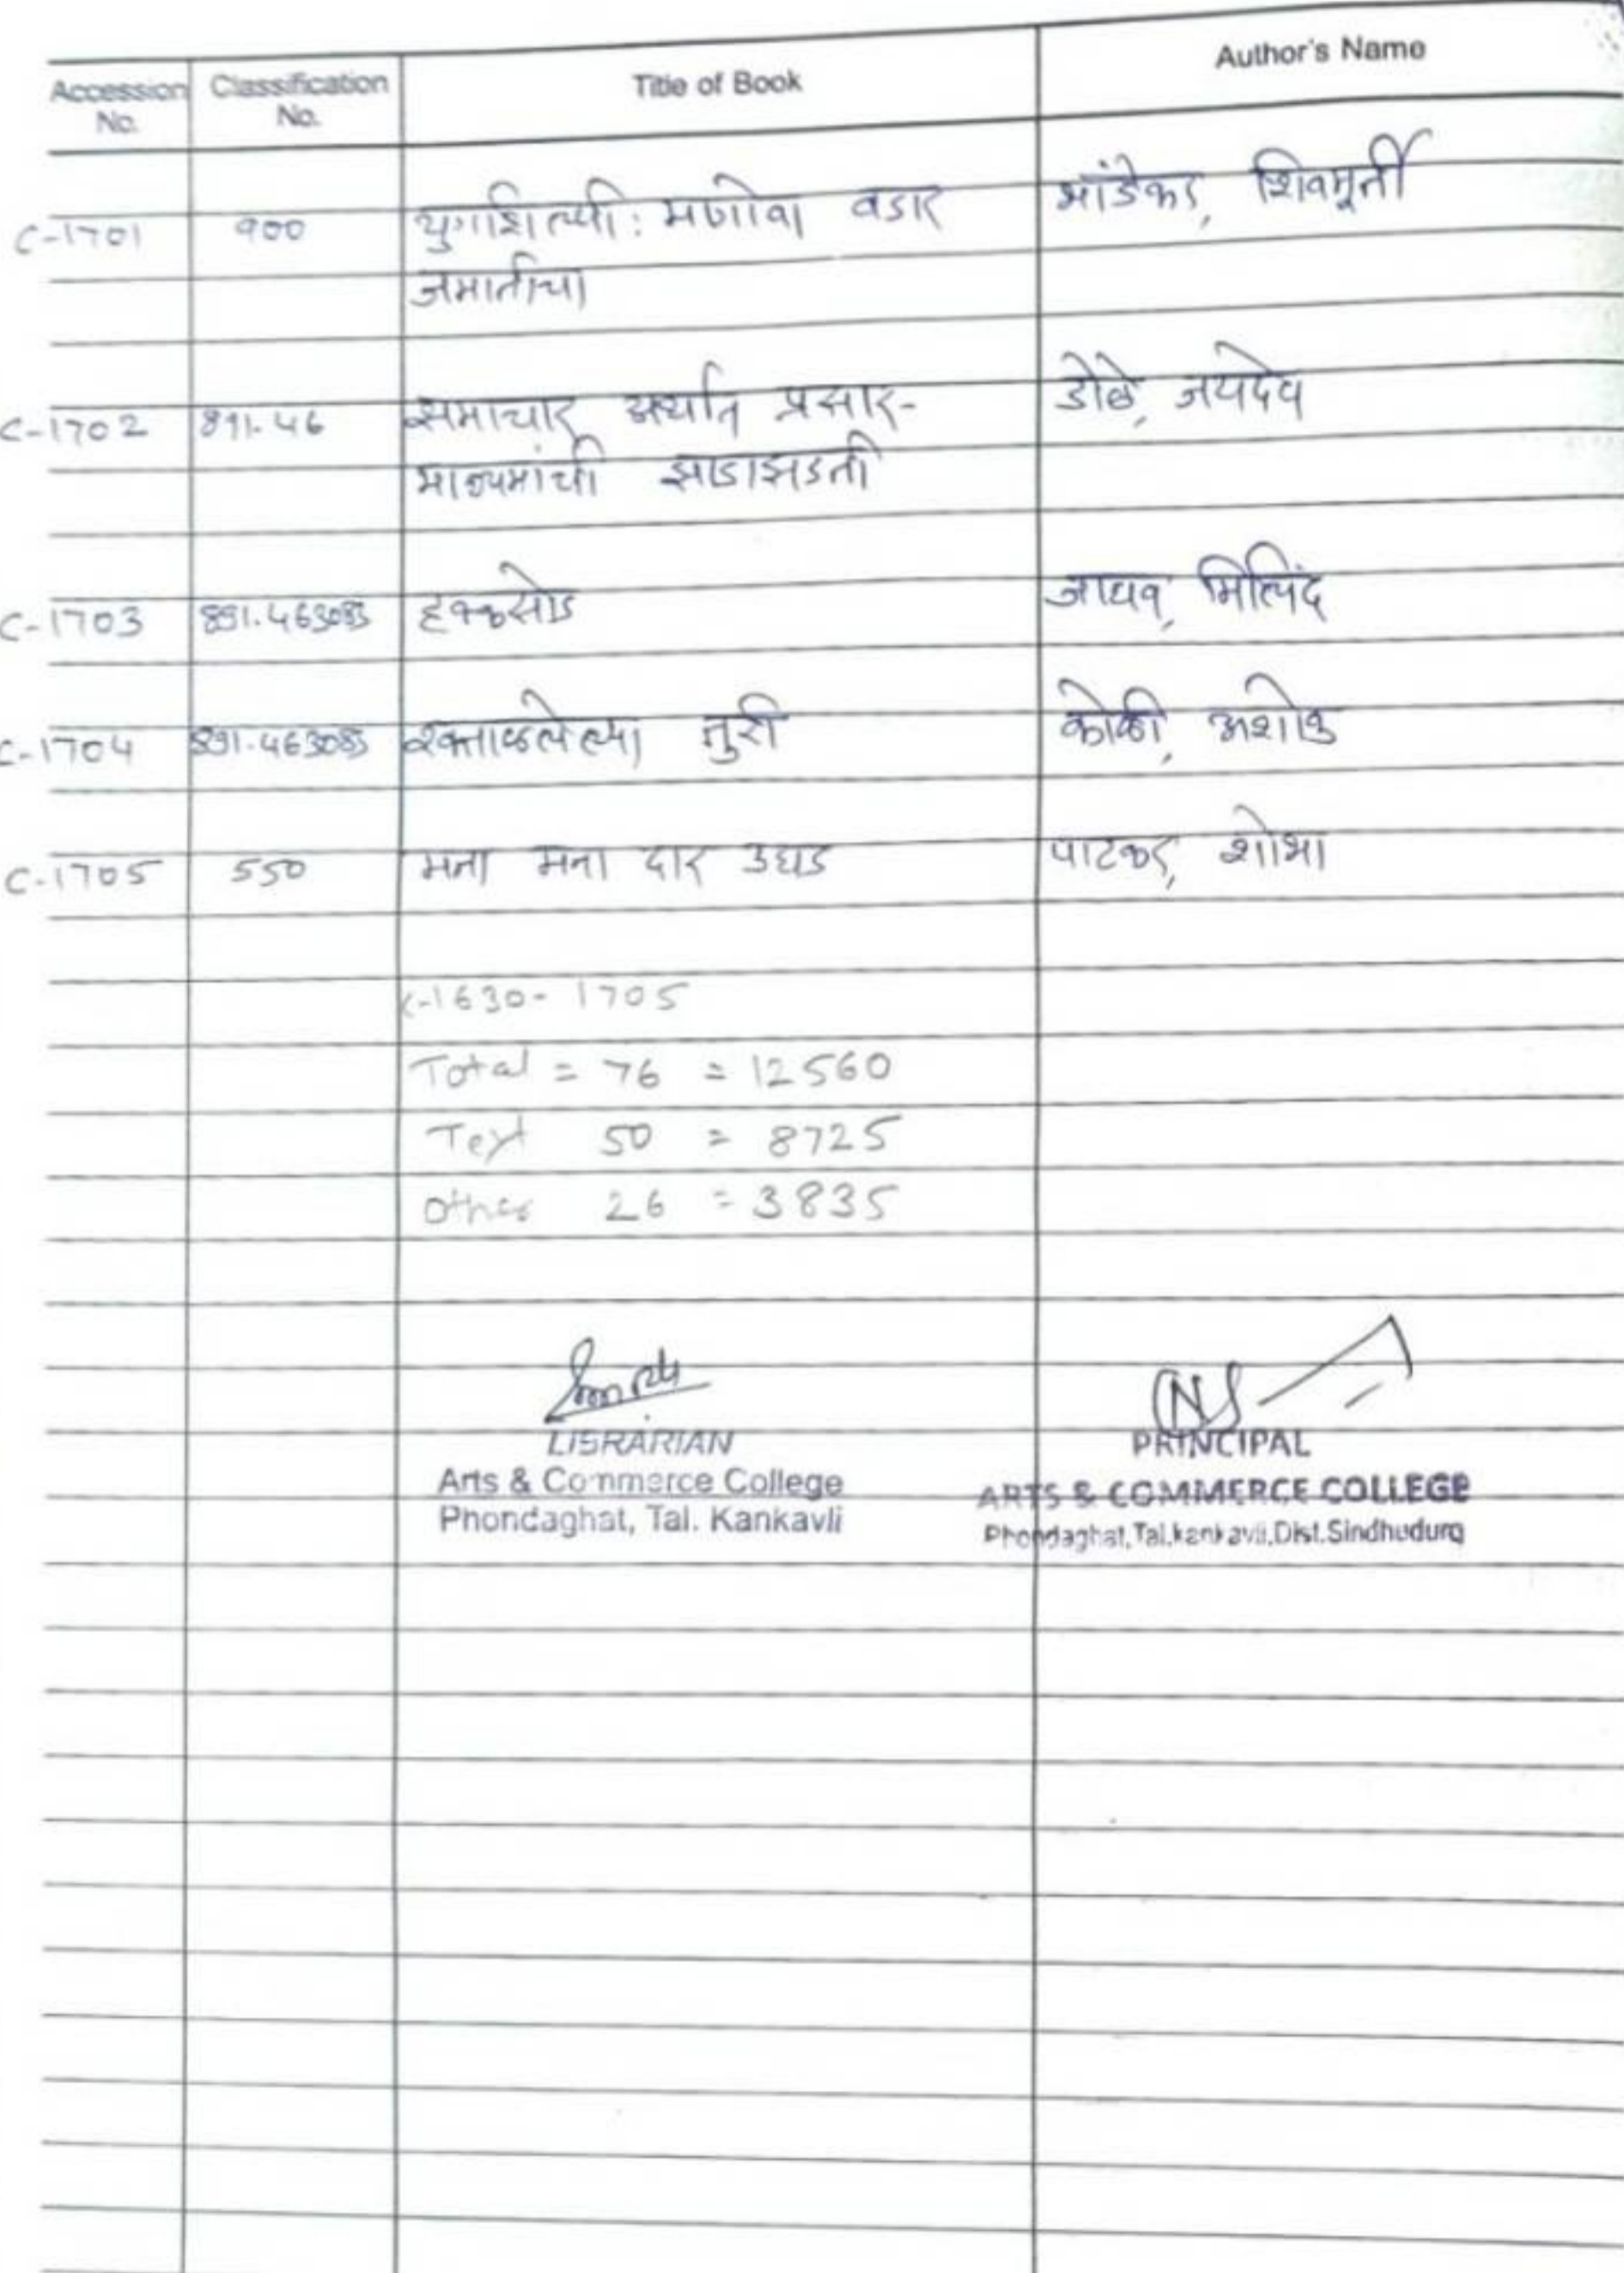 Accession No. Classification No. Title of Book Author's Name
C-1701 900 युगशिल्पी: मणोवा वडार भांडेकर, शिवमूर्ती
जमातीचा
C-1702 891.46 समाचार अर्थात प्रसार- डोळे, जयदेव
माध्यमांची झाडाझडती
C-1703 891.463083 हक्कसोड जाधव, मिलिंद
C-1704 891.463083 रक्ताळलेल्या तुरी कोळी, अशोक
C-1705 550 मना मना दार उघड पाटकर, शोभा
C-1630-1705
Total = 76 = 12560
Text 50 = 8725
Other 26 = 3835
LIBRARIAN
Arts & Commerce College
Phondaghat, Tal. Kankavli
PRINCIPAL
ARTS & COMMERCE COLLEGE
Phondaghat, Tal.kankavli, Dist.Sindhudurg